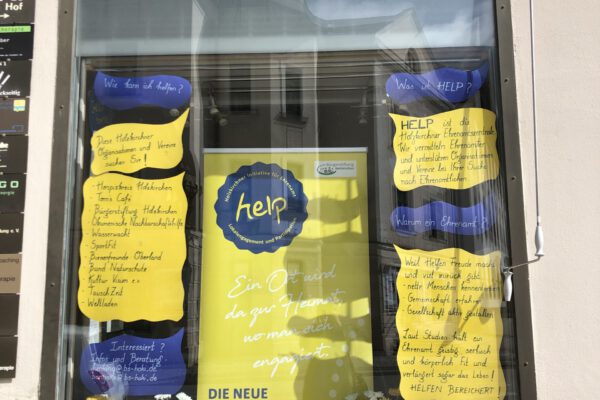 Hof
Wie kann ich helfen?
Diese Holzkirchner
Organisationen und Vereine
suchen Sie!
- Hospizkreis Holzkirchen
- Tom's Café
- Bürgerstiftung Holzkirchen
- Ökumenische Nachbarschaftshilfe
- Wasserwacht
- SportFit
- Bienenfreunde Oberland
- Bund Naturschutz
- Kultur im Raum e.V.
- TauschZeit
- Weltladen
Interessiert?
Infos und Beratung:
@bs-hoki.de
@bs-hoki.de
Holzkirchner Initiative für
help
Engagement und
Ein Ort wird
da zur Heimat,
wo man sich
engagiert.
DIE NEUE
Was ist HELP?
HELP ist die
Holzkirchner Ehrenamtszentrale.
Wir vermitteln Ehrenämter
und unterstützen Organisationen
und Vereine bei Ihrer Suche
nach Ehrenamtlichen.
Warum ein Ehrenamt?
Weil Helfen Freude macht
und viel zurück gibt.
- nette Menschen kennenlernen
- Gemeinschaft erfahren
- Gesellschaft aktiv gestalten
Laut Studien hält ein
Ehrenamt geistig, seelisch
und körperlich fit und
verlängert sogar das Leben!
HELFEN BEREICHERT!